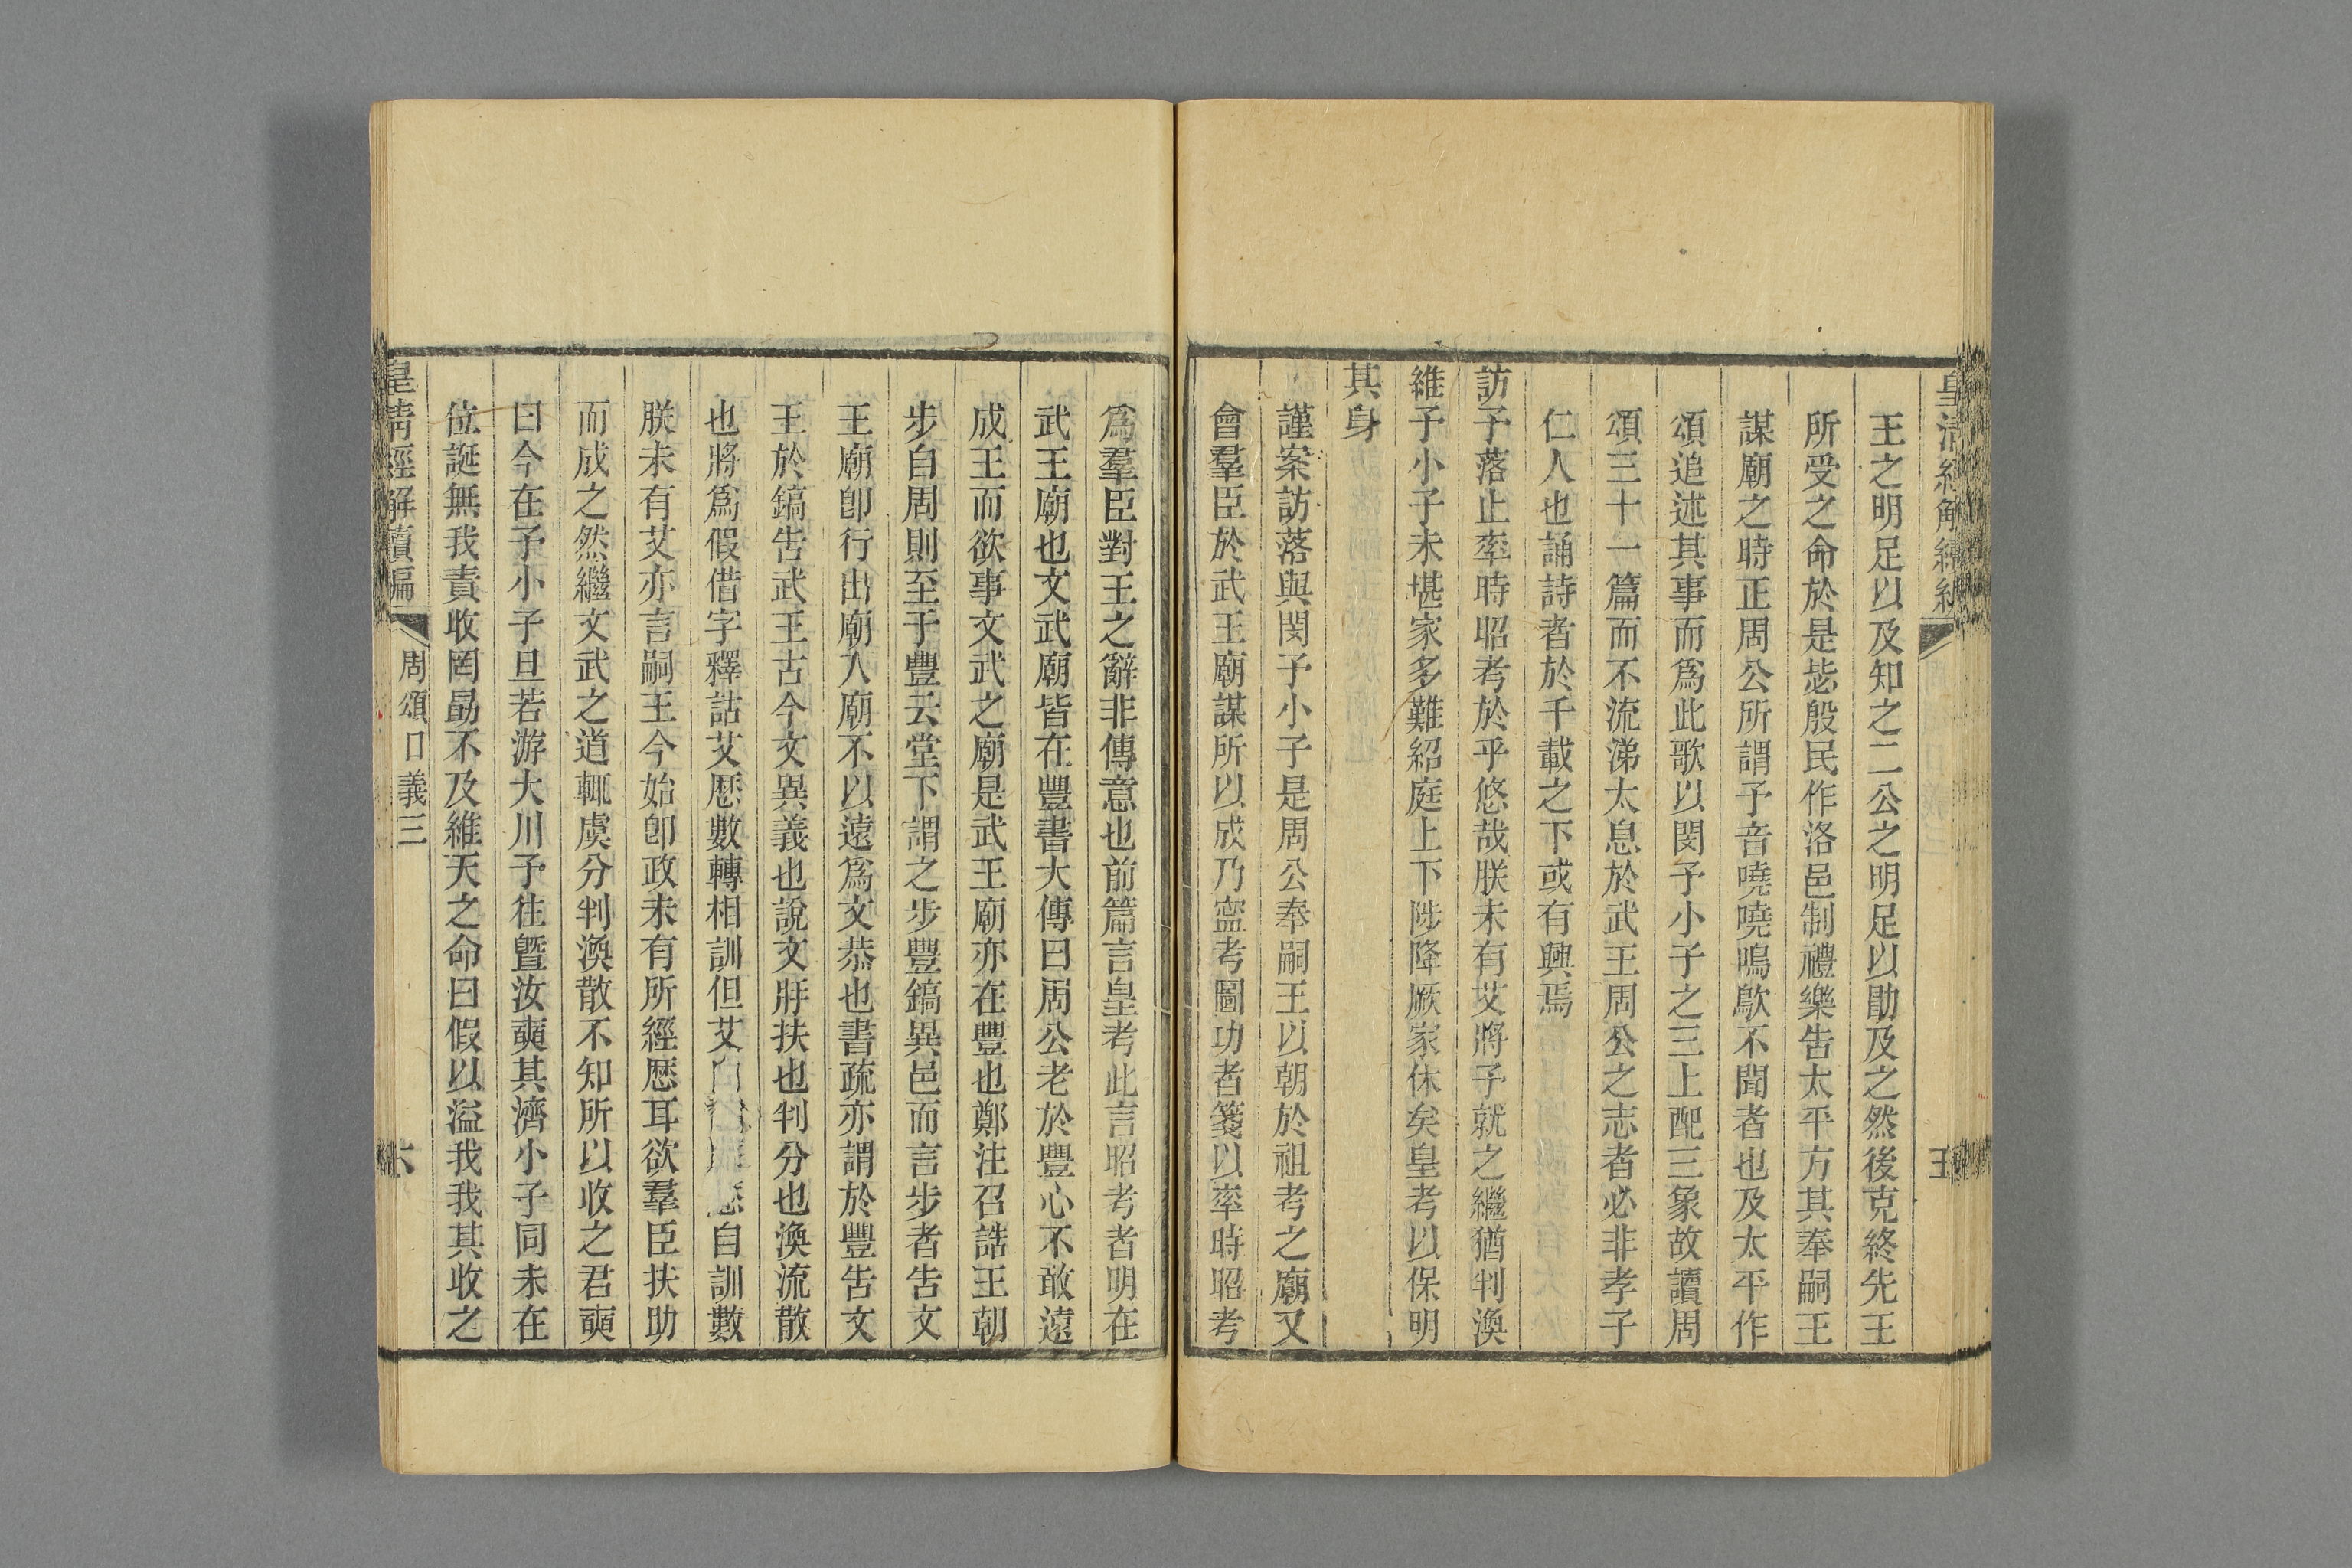 皇清經解續編
五
王之明足以及知之二公之明足以勖及之然後克終先王
所受之命於是毖殷民作洛邑制禮樂告太平方其奉嗣王
謀廟之時正周公所謂予音嘵嘵鳴歍不聞者也及太平作
頌追述其事而爲此歌以閔予小子之三上配三象故讀周
頌三十一篇而不流涕太息於武王周公之志者必非孝子
仁人也誦詩者於千載之下或有興焉
訪予落止率時昭考於乎悠哉朕未有艾將予就之繼猶判渙
維予小子未堪家多難紹庭上下陟降厥家休矣皇考以保明
其身
謹案訪落與閔予小子是周公奉嗣王以朝於祖考之廟又
會羣臣於武王廟謀所以成乃寍考圖功者箋以率時昭考
爲羣臣對王之辭非傳意也前篇言皇考此言昭考者明在
武王廟也文武廟皆在豐書大傳曰周公老於豐心不敢遠
成王而欲事文武之廟是武王廟亦在豐也鄭注召誥王朝
步自周則至于豐云堂下謂之步豐鎬異邑而言步者告文
王廟卽行出廟入廟不以遠爲文恭也書疏亦謂於豐告文
王於鎬告武王古今文異義也說文牂扶也判分也渙流散
也將爲假借字釋詁艾厯數轉相訓但艾自訓數
朕未有艾亦言嗣王今始卽政未有所經歷耳欲羣臣扶助
而成之然繼文武之道輒虞分判渙散不知所以收之君奭
曰今在予小子旦若游大川予往暨汝奭其濟小子同未在
位誕無我責收罔勗不及維天之命曰假以溢我我其收之
皇清經解續編
周頌口義三
六